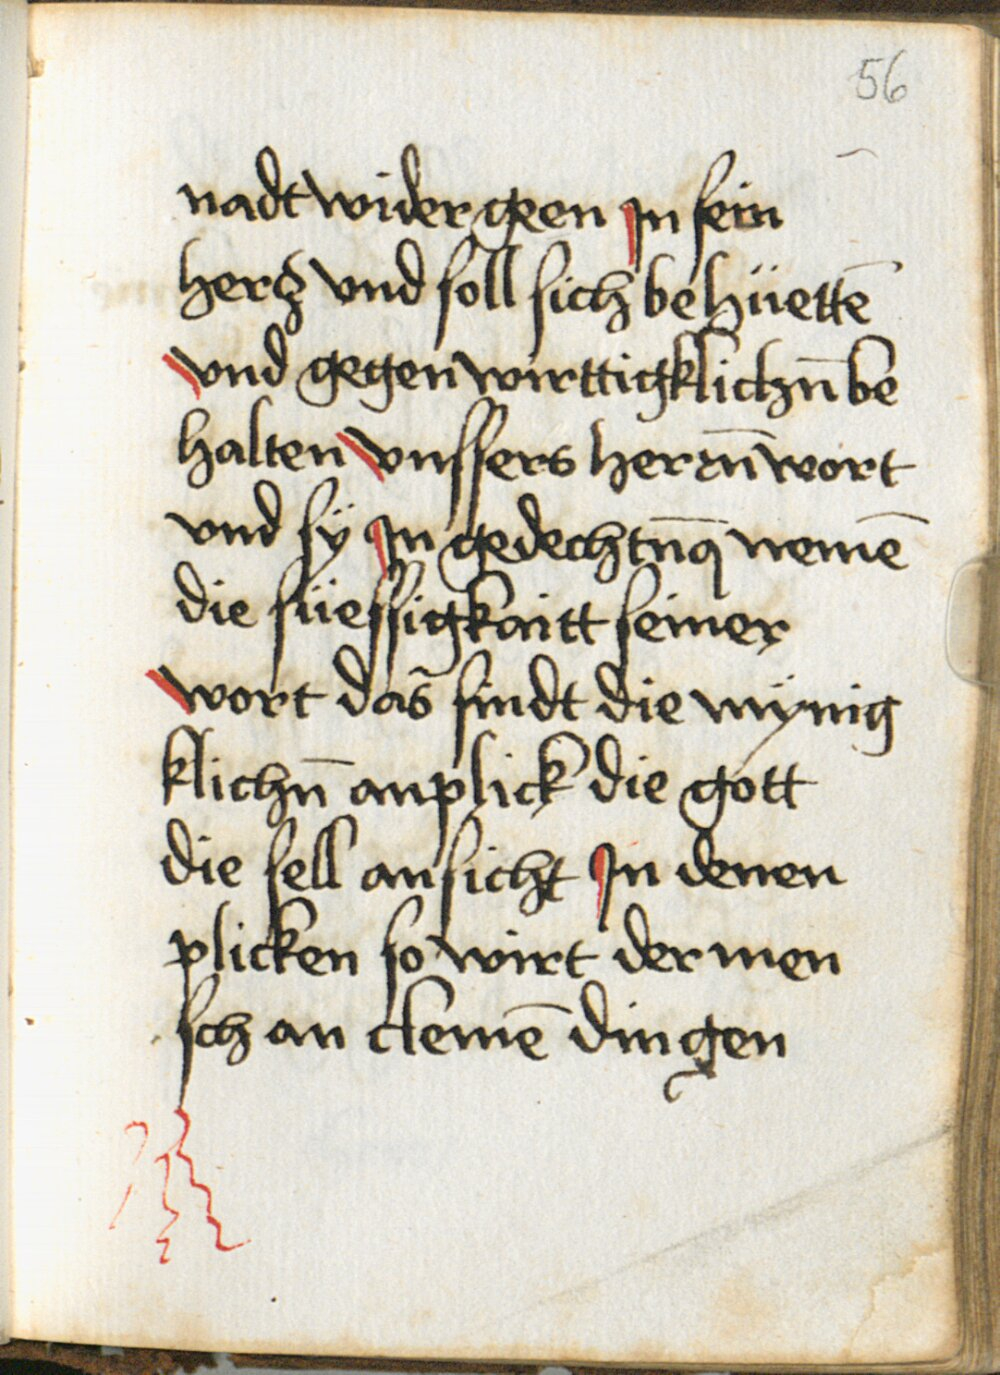 56
nadt wider geen Jn sein
hercz vnd soll sich behüettē
vnd gegenwirttigklichn̄ be
halten vnssers herrn̄ wort
vnd sÿ Jn gedechtnꝰ nemē
die süessigkaitt seiner
wort das̄ sindt die mÿnig
klichn̄ anplick die gott
die sell ansicht Jn denen
plicken so wirt der men
sch an clemē dingen